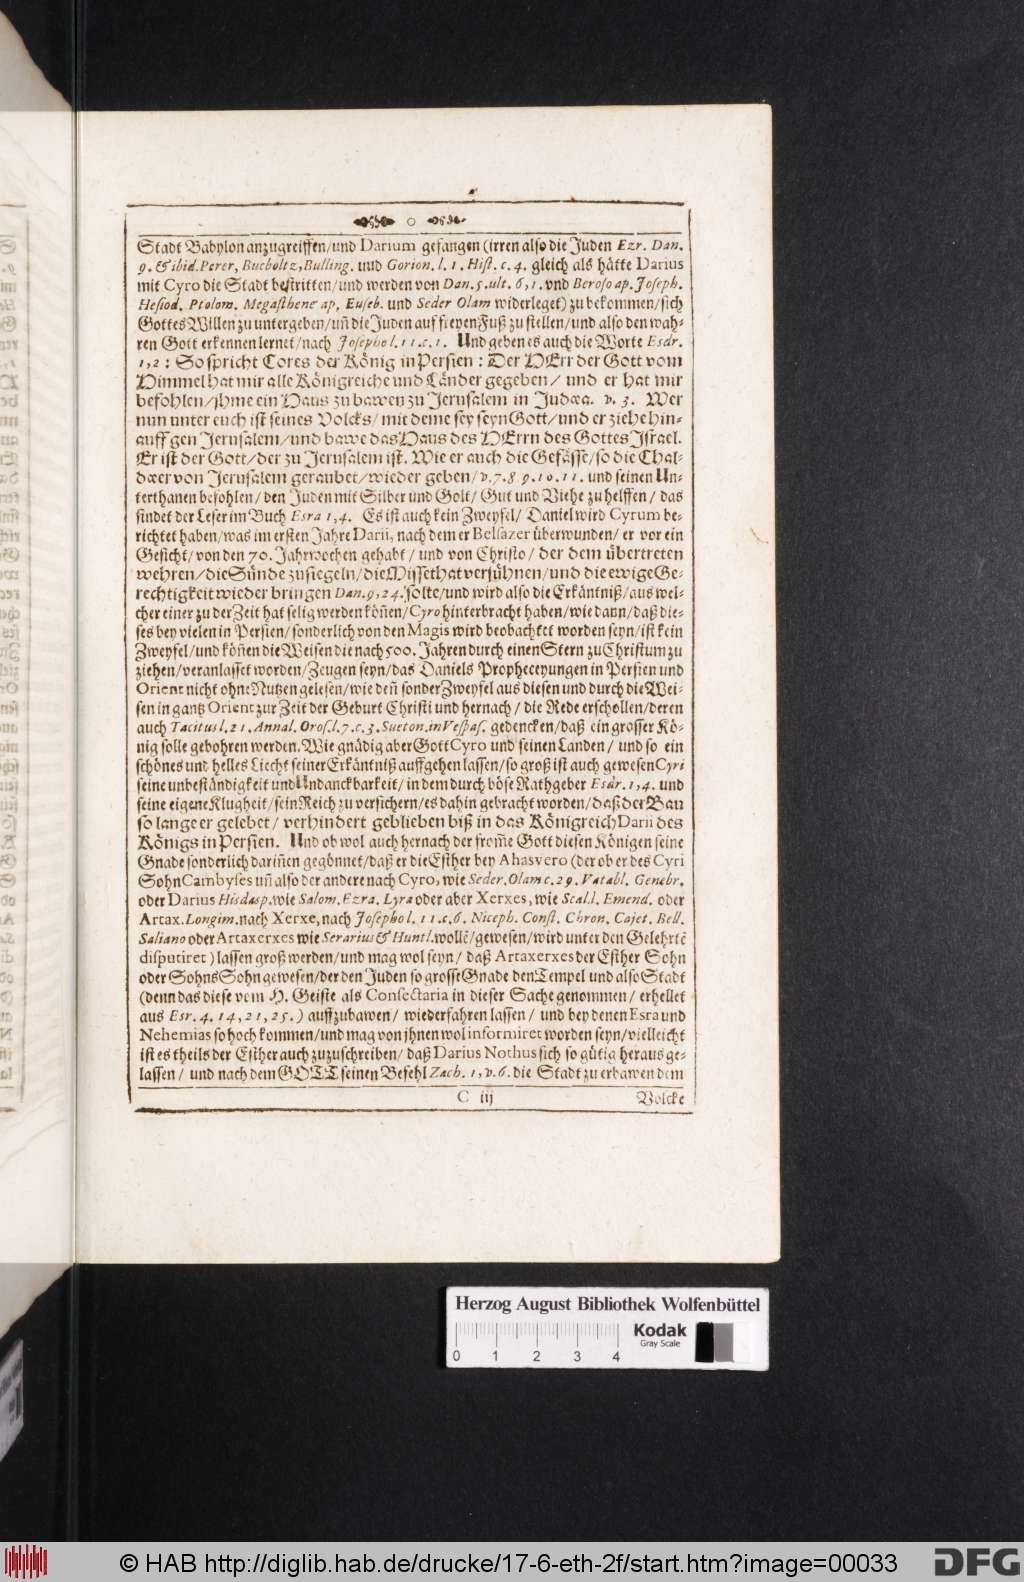 Stadt Babylon anzugreiffen/und Darium gefangen (irren also die Juden Ezr. Dan.
9. & ibid. Perer, Bucholtz, Bulling. und Gorion. l. 1. Hist. c. 4. gleich als hätte Darius
mit Cyro die Stadt bestritten/und werden von Dan. 5. ult. 6, 1. vnd Beroso ap. Joseph.
Hesiod. Ptolom. Megasthene ap, Euseb. und Seder Olam widerleget) zu bekommen/sich
Gottes Willen zu untergeben/uñ die Juden auf freyen Fuß zu stellen/und also den wah-
ren Gott erkennen lernet/nach Josepho l. 11. c. 1. Und geben es auch die Worte Esdr.
1, 2: So spricht Cores der König in Persien: Der HErr der Gott vom
Himmel hat mir alle Königreiche und Länder gegeben/ und er hat mir
befohlen/jhme ein Haus zu bawen zu Jerusalem in Judæa. v. 3. Wer
nun unter euch ist seines Volcks/mit deme sey seyn Gott/und er ziehe hin-
auff gen Jerusalem/und bawe das Haus des HErrn des Gottes Israel.
Er ist der Gott/der zu Jerusalem ist. Wie er auch die Gefässe/so die Chal-
dæer von Jerusalem geraubet/wieder geben/v. 7. 8 9. 10. 11. und seinen Un-
terthanen befohlen/den Juden mit Silber und Golt/ Gut und Viehe zu helffen/das
findet der Leser im Buch Esra 1, 4. Es ist auch kein Zweyfel/ Daniel wird Cyrum be-
richtet haben/was im ersten Jahre Darii, nach dem er Belsazer überwunden/er vor ein
Gesicht/von den 70. Jahrwochen gehabt/ und von Christo/ der dem übertreten
wehren/die Sünde zusiegeln/die Missethat versühnen/und die ewige Ge-
rechtigkeit wieder bringen Dan. 9, 24. solte/und wird also die Erkäntniß/aus wel-
cher einer zu der Zeit hat selig werden köñen/Cyro hinterbracht haben/wie dann/daß die-
ses bey vielen in Persien/sonderlich von den Magis wird beobachtet worden seyn/ist kein
Zweyfel/und köñen die Weisen die nach 500. Jahren durch einen Stern zu Christum zu
ziehen/veranlasset worden/Zeugen seyn/das Daniels Propheceyungen in Persien und
Orient nicht ohne Nutzen gelesen/wie deñ sonder Zweyfel aus diesen und durch die Wei-
sen in gantz Orient zur Zeit der Geburt Christi und hernach/ die Rede erschollen/deren
auch Tacitus l. 21. Annal. Oros. l. 7. c. 3. Sueton. in Vespas. gedencken/daß ein grosser Kö-
nig solle gebohren werden. Wie gnädig aber Gott Cyro und seinen Landen/ und so ein
schönes und helles Liecht seiner Erkäntniß auffgehen lassen/so groß ist auch gewesen Cyri
seine unbeständigkeit und Undanckbarkeit/in dem durch böse Rathgeber Esdr. 1, 4. und
seine eigene Klugheit/sein Reich zu versichern/es dahin gebracht worden/daß der Bau
so lange er gelebet/ verhindert geblieben biß in das Königreich Darii des
Königs in Persien. Und ob wol auch hernach der from̃e Gott diesen Königen seine
Gnade sonderlich dariñen gegönnet/daß er die Esther bey Ahasvero (der ob er des Cyri
Sohn Cambyses uñ also der andere nach Cyro, wie Seder. Olam c. 29. Vatabl. Genebr.
oder Darius Hisdasp. wie Salom. Ezra. Lyra oder aber Xerxes, wie Scal. l. Emend. oder
Artax. Longim. nach Xerxe, nach Josepho l. 11. c. 6. Niceph. Const. Chron. Cajet. Bell.
Saliano oder Artaxerxes wie Serarius & Huntl. wollẽ/gewesen/wird unter den Gelehrtẽ
disputiret) lassen groß werden/und mag wol seyn/ daß Artaxerxes der Esther Sohn
oder Sohns Sohn gewesen/der den Juden so grosse Gnade den Tempel und also Stadt
(denn das diese vom H. Geiste als Consectaria in dieser Sache genommen/ erhellet
aus Esr. 4. 14, 21, 25.) auffzubawen/ wiederfahren lassen/ und bey denen Esra und
Nehemias so hoch kommen/und mag von jhnen wol informiret worden seyn/vielleicht
ist es theils der Esther auch zuzuschreiben/ daß Darius Nothus sich so gütig heraus ge-
lassen/ und nach dem GOTT seinen Befehl Zach. 1, v. 6. die Stadt zu erbawen dem
C iij Volcke
Herzog August Bibliothek Wolfenbüttel
Kodak
Gray Scale
0 1 2 3 4
© HAB http://diglib.hab.de/drucke/17-6-eth-2f/start.htm?image=00033
DFG